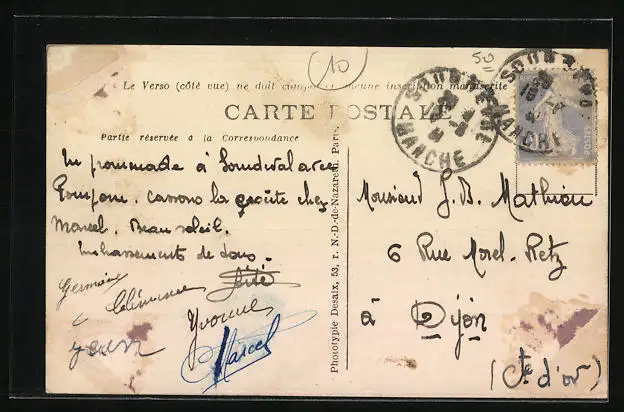 10
50
Le Verso (côté vue) ne doit comporter aucune inscription manuscrite
CARTE POSTALE
Partie réservée à la Correspondance
SOURDEVAL
MANCHE
SOURDEVAL
MANCHE
POSTES
En promenade à Sourdeval avec
Pompom. Cassons la croûte chez
Marcel. Beau soleil.
Embrassements de tous.
Germaine
Célimène
Yvonne
Jean
Marcel
Phototypie Desaix, 53, r. N.-D.-de-Nazareth, Paris.
Monsieur J.B. Mathieu
6 Rue Morel-Retz
à Dijon
(Cte d'or)